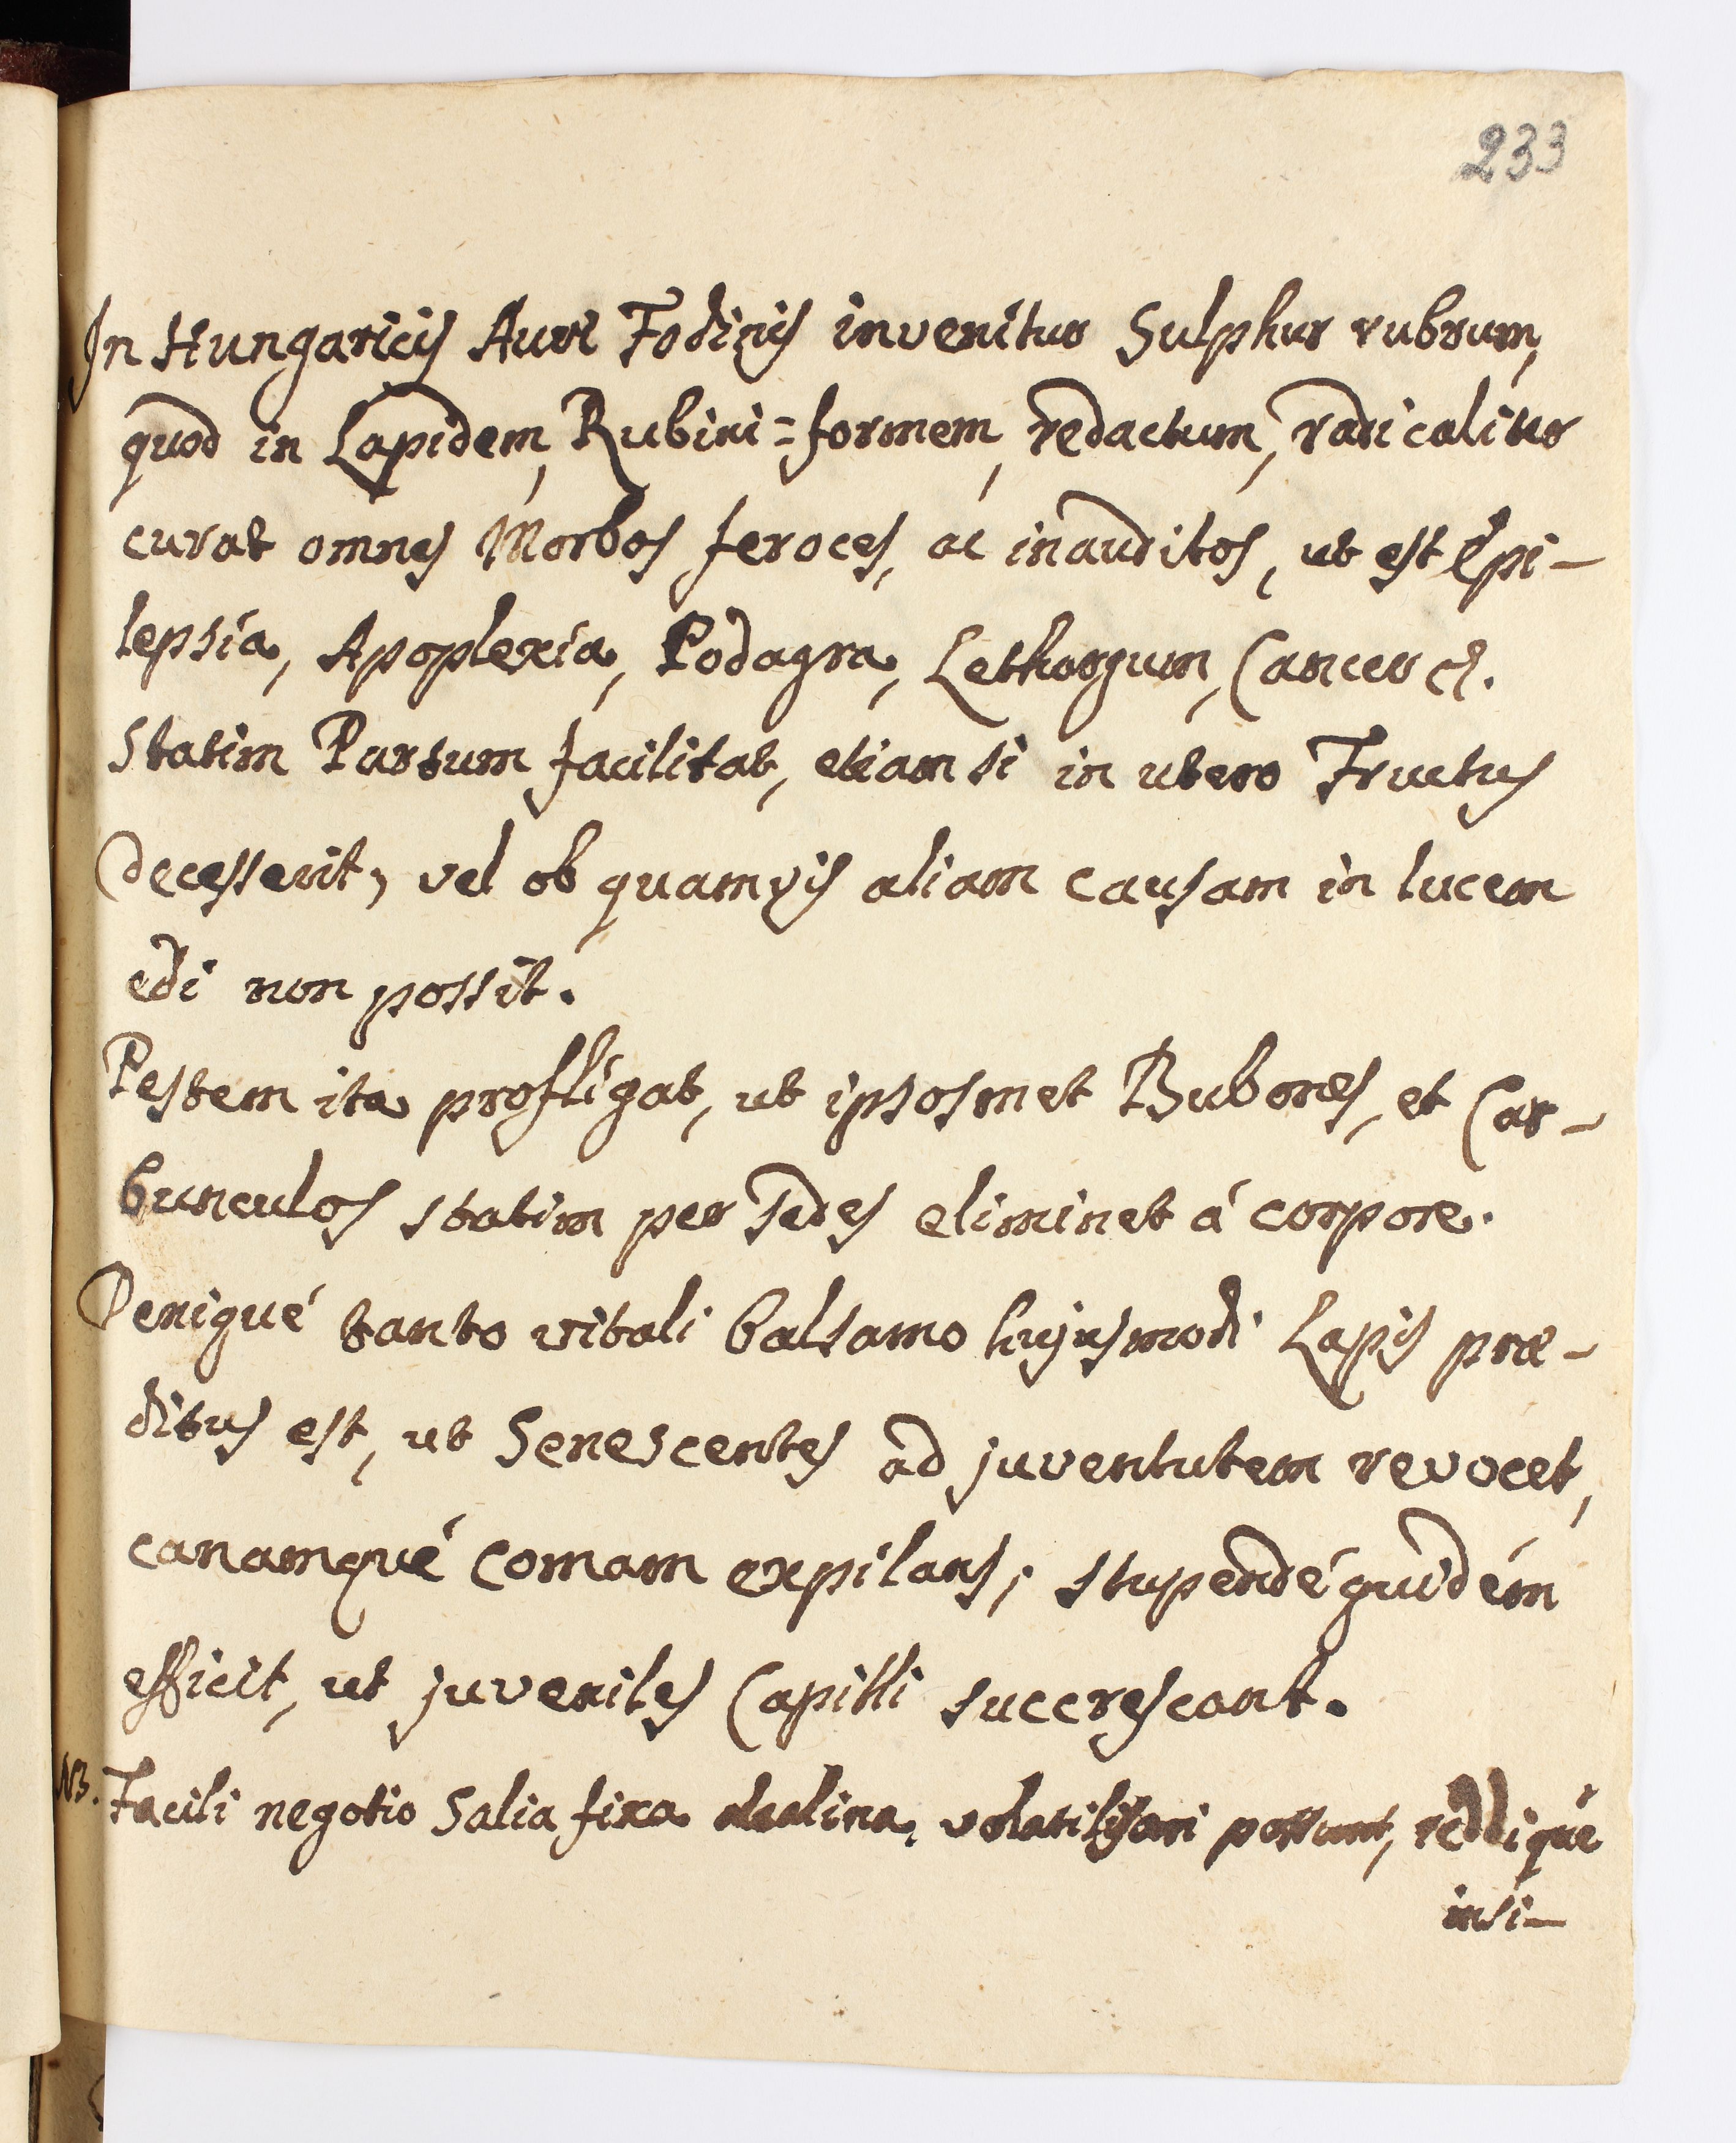 233
In Hungaricis Auri Fodinis invenitur Sulphur rubrum,
quod in Lapidem, Rubini=formem, redactum, radicaliter
curat omnes Morbos feroces, ac inauditos, ut est Epi-
lepsia, Apoplexia, Podagra, Lethargum, Cancer &.
Statim Partum facilitat, etiam si in utero Fructus
decesserit, vel ob quamvis aliam causam in lucem
edi non possit.
Pestem ita profligat, ut ipsosmet Bubones, et Car-
bunculos statim per sedes eliminet á corpore.
Deniqué tanto vitali balsamo hujusmodi Lapis præ-
ditus est, ut Senescentes ad juventutem revocet,
canamqué comam expilans; stupendé quidém
efficit, ut juveniles Capilli succrescant.
NB. Facili negotio Salia fixa alcalina, volatilisari possunt, reddiqué
insi-